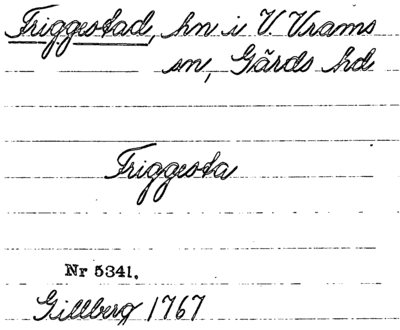 Friggestad, hn i V. Vrams
sn, Gärds hd
Friggesta
Nr 5341.
Gillberg 1767